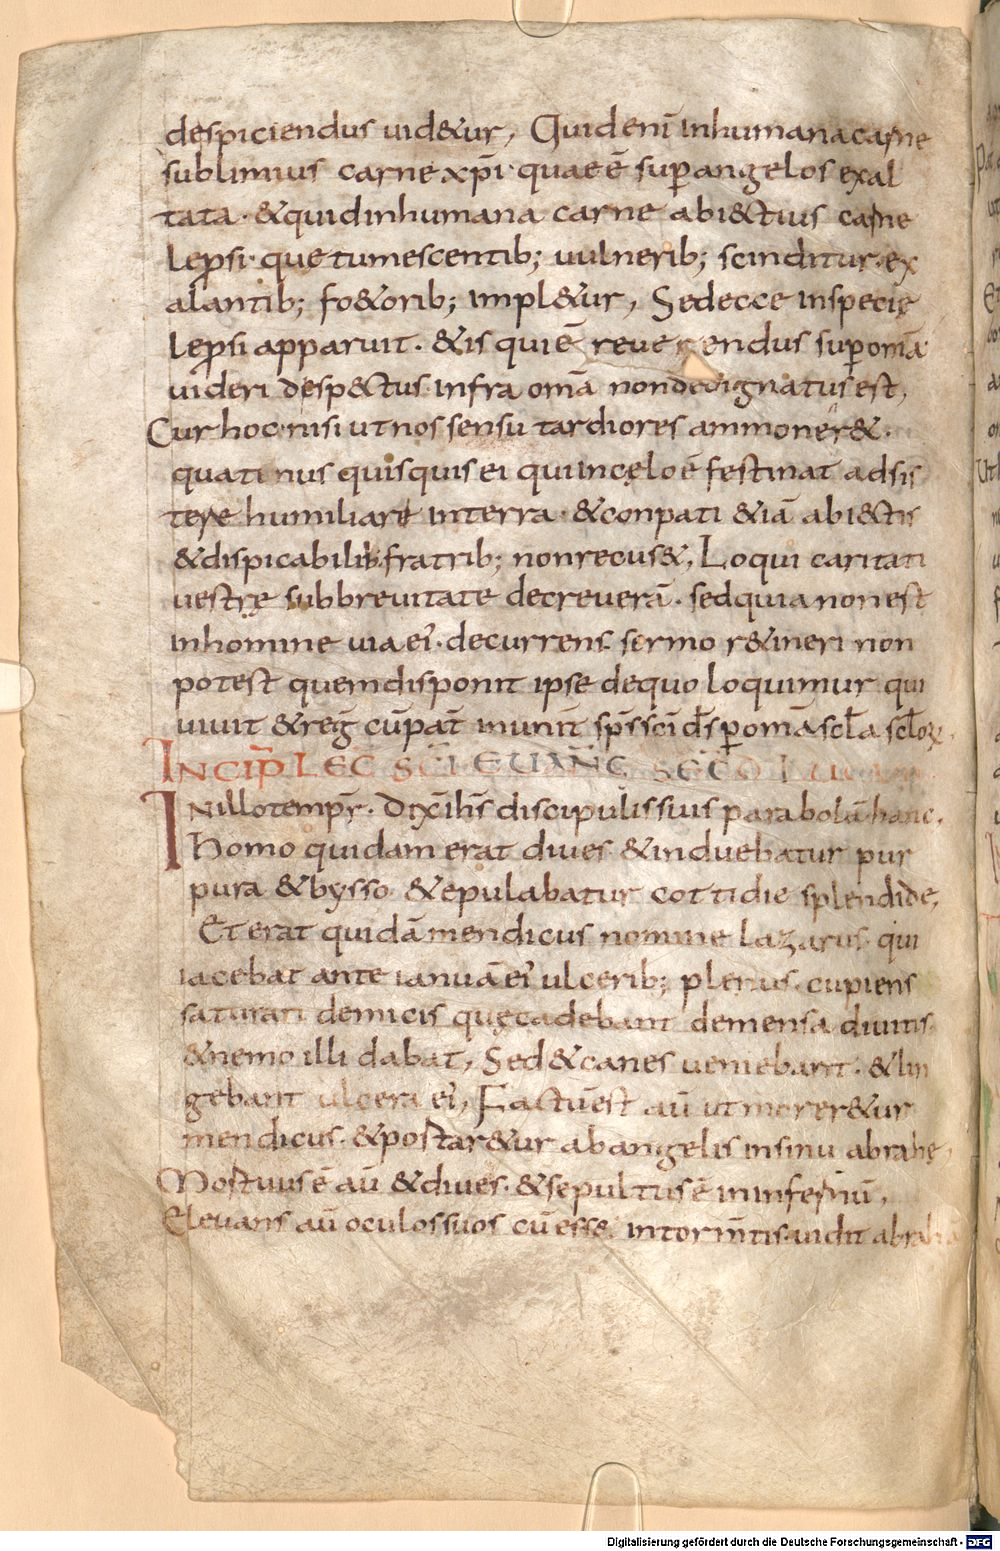 despiciendus uid&ur, Quid enī inhumana carne
sublimius carne xp̄i quae ē sup̲ angelos exal
tata · & quid inhumana carne abi&ctius carne
lep̲si · que tumescentib; uulnerib; scinditur · ex
alantib; fo&orib; impl&ur, Sed ecce inspecie
lep̲si apparuit · & is qui ē reuerendus sup̲ omā
uideri desp&ctus infra omā non dedignatus est,
Cur hoc · nisi ut nos sensu tardiores ammoner& ·
quatinus quisquis ei qui incęlo ē festinat adsis
tere humiliari interra · & conpati & iā abi&ctis
& dispicabilib; fratrib; non recus&, Loqui caritati
uestrę sub breuitate decreuerā · sed quia non est
inhomine uia eī · decurrens sermo r&ineri non
potest quem disponit ipse dequo loquimur qui
uiuit & reḡ cū pat̄ in unit̄ sp̄s sc̄i d̄s p̲ omā scła scłoꝝ
INCIP̄ LEC̄ SC̄I EUANḠ SEC̄D LUCAM
In illo temp̄r · Dix̄ ih̄s discipulis suis parabolā hanc,
Homo quidam erat diues & induebatur pur
pura & bysso & epulabatur cottidie splendide,
Et erat quidā mendicus nomine lazarus · qui
iacebat ante ianuā eī ulcerib; plenus · cupiens
saturari demicis quę cadebant demensa diuitis
& nemo illi dabat, Sed & canes ueniebant · & lin
gebant ulcera eī, Factū est aū ut morer&ur
mendicus · & portar&ur abangelis insinu abrahę,
Mortuus ē aū & diues · & sepultus ē in infernū,
Eleuans aū oculos suos cū esse intorm̄tis · uidit abraha
Digitalisierung gefördert durch die Deutsche Forschungsgemeinschaft - DFG